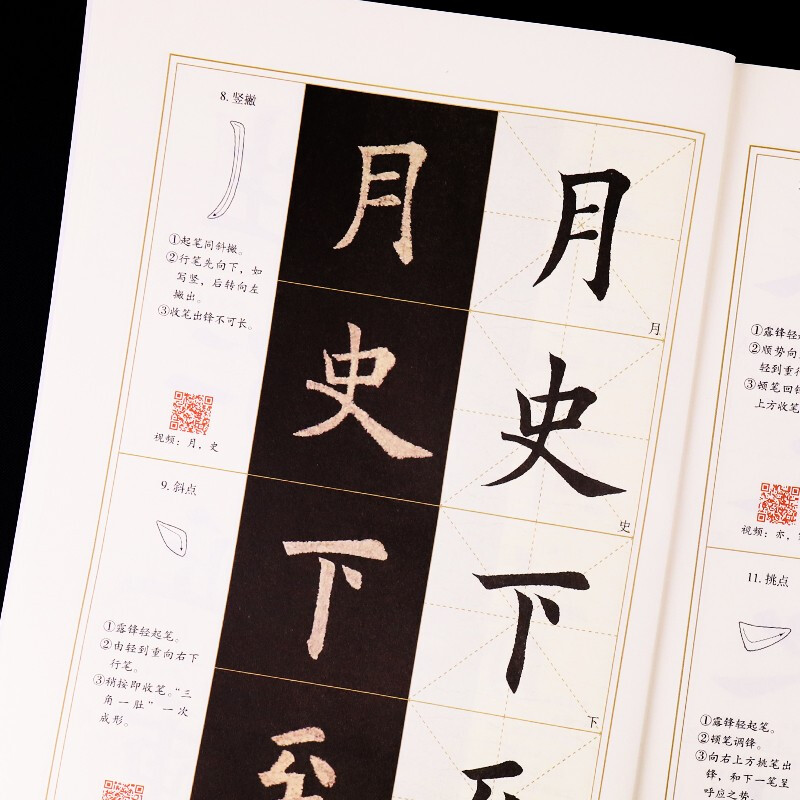 8. 竖撇
①起笔同斜撇。
②行笔先向下，如
写竖，后转向左
撇出。
③收笔出锋不可长。
视频：月，史
月
月
月
史
史
史
9. 斜点
①露锋轻起笔。
②由轻到重向右下
行笔。
③稍按即收笔。“三
角一肚”一次
成形。
下
下
下
至
至
①露锋轻起
②顺势向
轻到重行
③顿笔回锋
上方收笔
视频：亦，
11. 挑点
①露锋轻起笔。
②顿笔调锋。
③向右上方挑笔出
锋，和下一笔呈
呼应之势。